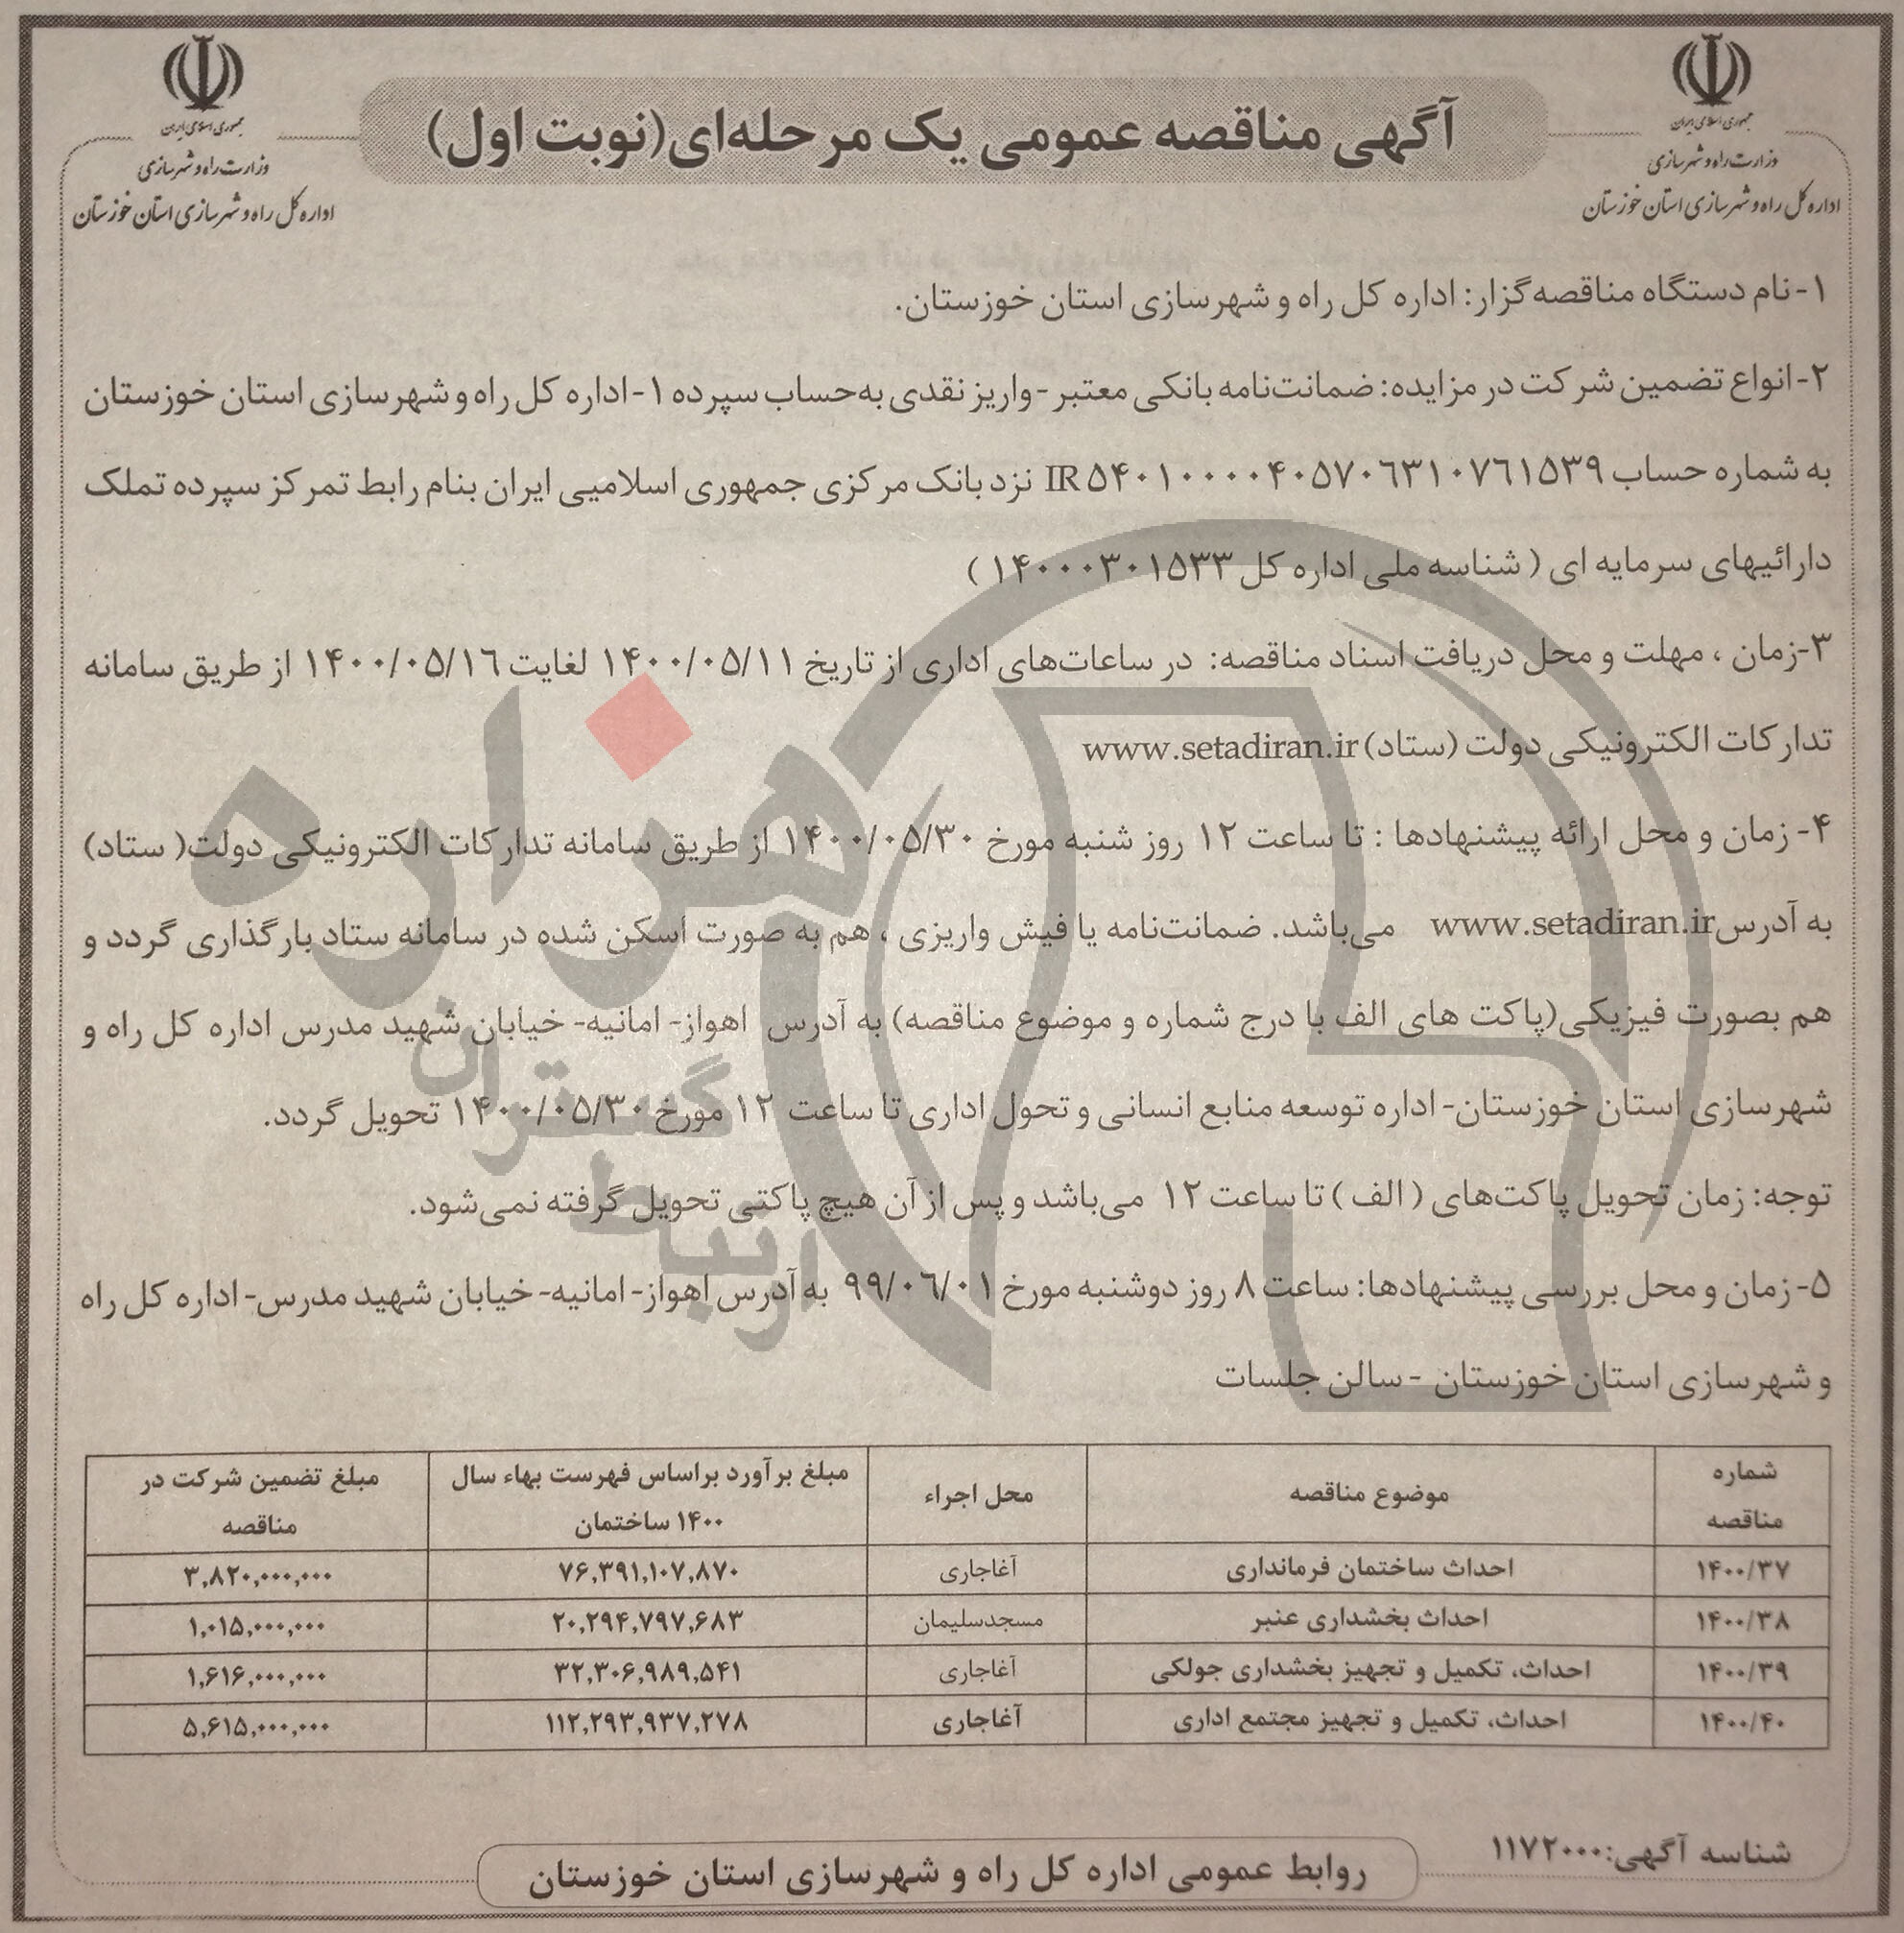 جمهوری اسلامی ایران
وزارت راه و شهرسازی
اداره کل راه و شهرسازی استان خوزستان
آگهی مناقصه عمومی یک مرحله‌ای(نوبت اول)
جمهوری اسلامی ایران
وزارت راه و شهرسازی
اداره کل راه و شهرسازی استان خوزستان
۱-نام دستگاه مناقصه‌گزار: اداره کل راه و شهرسازی استان خوزستان.
۲-انواع تضمین شرکت در مزایده: ضمانت‌نامه بانکی معتبر -واریز نقدی به‌حساب سپرده ۱-اداره کل راه و شهرسازی استان خوزستان
به شماره حساب IR۵۴۰۱۰۰۰۰۴۰۵۷۰۶۳۱۰۷۶۱۵۳۹ نزد بانک مرکزی جمهوری اسلامیی ایران بنام رابط تمرکز سپرده تملک
دارائیهای سرمایه ای ( شناسه ملی اداره کل ۱۴۰۰۰۳۰۱۵۳۳ )
۳-زمان ، مهلت و محل دریافت اسناد مناقصه: در ساعات‌های اداری از تاریخ ۱۴۰۰/۰۵/۱۱ لغایت ۱۴۰۰/۰۵/۱۶ از طریق سامانه
تدارکات الکترونیکی دولت (ستاد) www.setadiran.ir
۴- زمان و محل ارائه پیشنهادها : تا ساعت ۱۲ روز شنبه مورخ ۱۴۰۰/۰۵/۳۰ از طریق سامانه تدارکات الکترونیکی دولت( ستاد)
به آدرس www.setadiran.ir می‌باشد. ضمانت‌نامه یا فیش واریزی ، هم به صورت اسکن شده در سامانه ستاد بارگذاری گردد و
هم بصورت فیزیکی(پاکت های الف با درج شماره و موضوع مناقصه) به آدرس اهواز- امانیه- خیابان شهید مدرس اداره کل راه و
شهرسازی استان خوزستان- اداره توسعه منابع انسانی و تحول اداری تا ساعت ۱۲ مورخ ۱۴۰۰/۰۵/۳۰ تحویل گردد.
توجه: زمان تحویل پاکت‌های ( الف ) تا ساعت ۱۲ می‌باشد و پس از آن هیچ پاکتی تحویل گرفته نمی‌شود.
۵- زمان و محل بررسی پیشنهادها: ساعت ۸ روز دوشنبه مورخ ۹۹/۰۶/۰۱ به آدرس اهواز- امانیه- خیابان شهید مدرس- اداره کل راه
و شهرسازی استان خوزستان - سالن جلسات
شماره مناقصه موضوع مناقصه محل اجراء مبلغ برآورد براساس فهرست بهاء سال ۱۴۰۰ ساختمان مبلغ تضمین شرکت در مناقصه
۱۴۰۰/۳۷ احداث ساختمان فرمانداری آغاجاری ۷۶,۳۹۱,۱۰۷,۸۷۰ ۳,۸۲۰,۰۰۰,۰۰۰
۱۴۰۰/۳۸ احداث بخشداری عنبر مسجدسلیمان ۲۰,۲۹۴,۷۹۷,۶۸۳ ۱,۰۱۵,۰۰۰,۰۰۰
۱۴۰۰/۳۹ احداث، تکمیل و تجهیز بخشداری جولکی آغاجاری ۳۲,۳۰۶,۹۸۹,۵۴۱ ۱,۶۱۶,۰۰۰,۰۰۰
۱۴۰۰/۴۰ احداث، تکمیل و تجهیز مجتمع اداری آغاجاری ۱۱۲,۲۹۳,۹۳۷,۲۷۸ ۵,۶۱۵,۰۰۰,۰۰۰
شناسه آگهی:۱۱۷۲۰۰۰
روابط عمومی اداره کل راه و شهرسازی استان خوزستان
هزاره
گستران
ارتباط